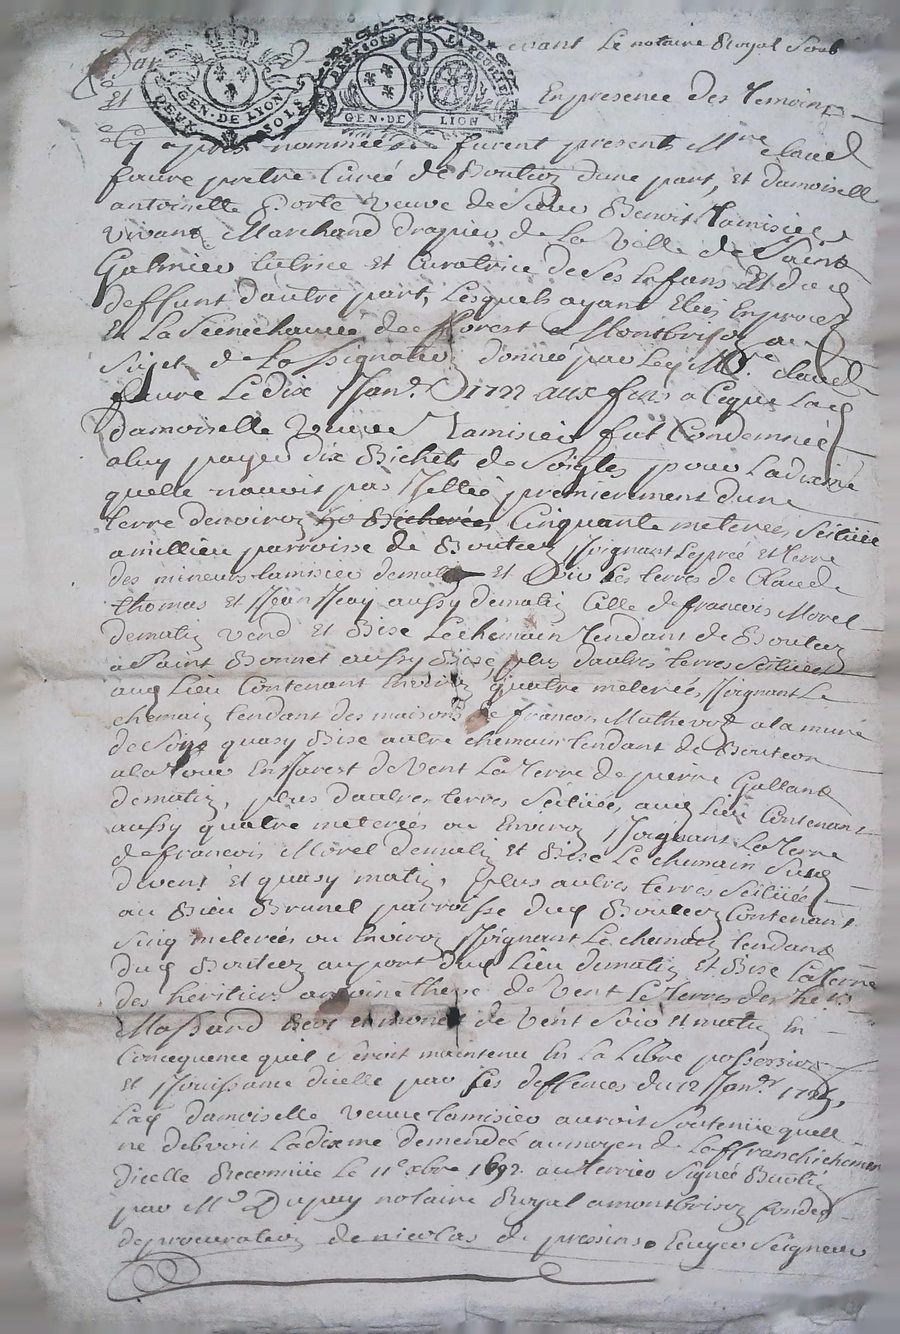 GEN. DE LYON
SOLS
DEUX SOLS LA FEUILLE
GEN. DE LYON
Par devant Le notaire Royal Soub
Et En presence des Temoins
Cy apres nommées furent presents Mre claude
faure pretre Curée de Bouteon dune part, Et damoiselle
antoinette Porte veuve de Sieur Benoist Tamisier
vivant Marchand drapier de La Ville de Saint
Galmier tutrice Et Curatrice de Ses Enfans Et dud
deffunt dautre part, Lesquels ayant Eleu En procez
En La Senechaucée de fforest a Montbrison au
Sujet de Lassignation donnée par Led Mre claude
faure Le dix Janr 1722 aux fins a Ceque Lad
damoiselle veuve Tamisier fut Condemnée
aluy payer dix Bichets de Soigle pour Ladixme
quelle navoit pas Mellée premierement dune
terre denviron Cinquante meterées Scituée
amillieu parroisse de Bouteon Joignant Lepréé Et terre
des mineurs tamisier dematin Et Soir Les terres de Claude
thomas Et Jean Jay aussy dematin Celle de francois Morel
dematin vend Et Bise Le chemain Tendant de Bouteon
a Saint Bonnet aussy Bise plus dautres terres Scituées
aud Lieu Contenant Environ quatre meterées Joignant Le
chemain tendant des maisons de francois Mathevot ala mure
de Soir quasy Bise autre chemain tendant de Bouteon
ala Tour En Jarest de Vent La Terre de pierre Galland
dematin, plus dautres terres Scituées aud Lieu Contenant
aussy quatre meterées ou Environ Joignant La Terre
de francois Morel dematin Et Bise Le chemain Susd
devent Et quasy matin, plus autres terres Scituées
au Lieu Brunel parroisse dud Bouteon Contenant
Sinq meterées ou Environ Joignant Le chemain tendant
dud Bouteon auport dud Lieu dematin Et Bise La Terre
des heritiers antoine de Vent Le Terres des
Massard de Vent Soir Et matin En
Concequence quil Seroit maintenu En La Libre possession
Et Jouissance dicelle par Ses deffences du 12 Janr
Lad damoiselle veuve tamisier auroit Soutenue quelle
ne debvoit Ladixme demendée aumoyen de Laffranchichement
dicelle Reconnüe Le 11e xbre 1692 au terrier Signée
par Me Dupuy notaire Royal amontbrison fondéé
deprocuration de nicolas de pressins Ecuyer Seigneur